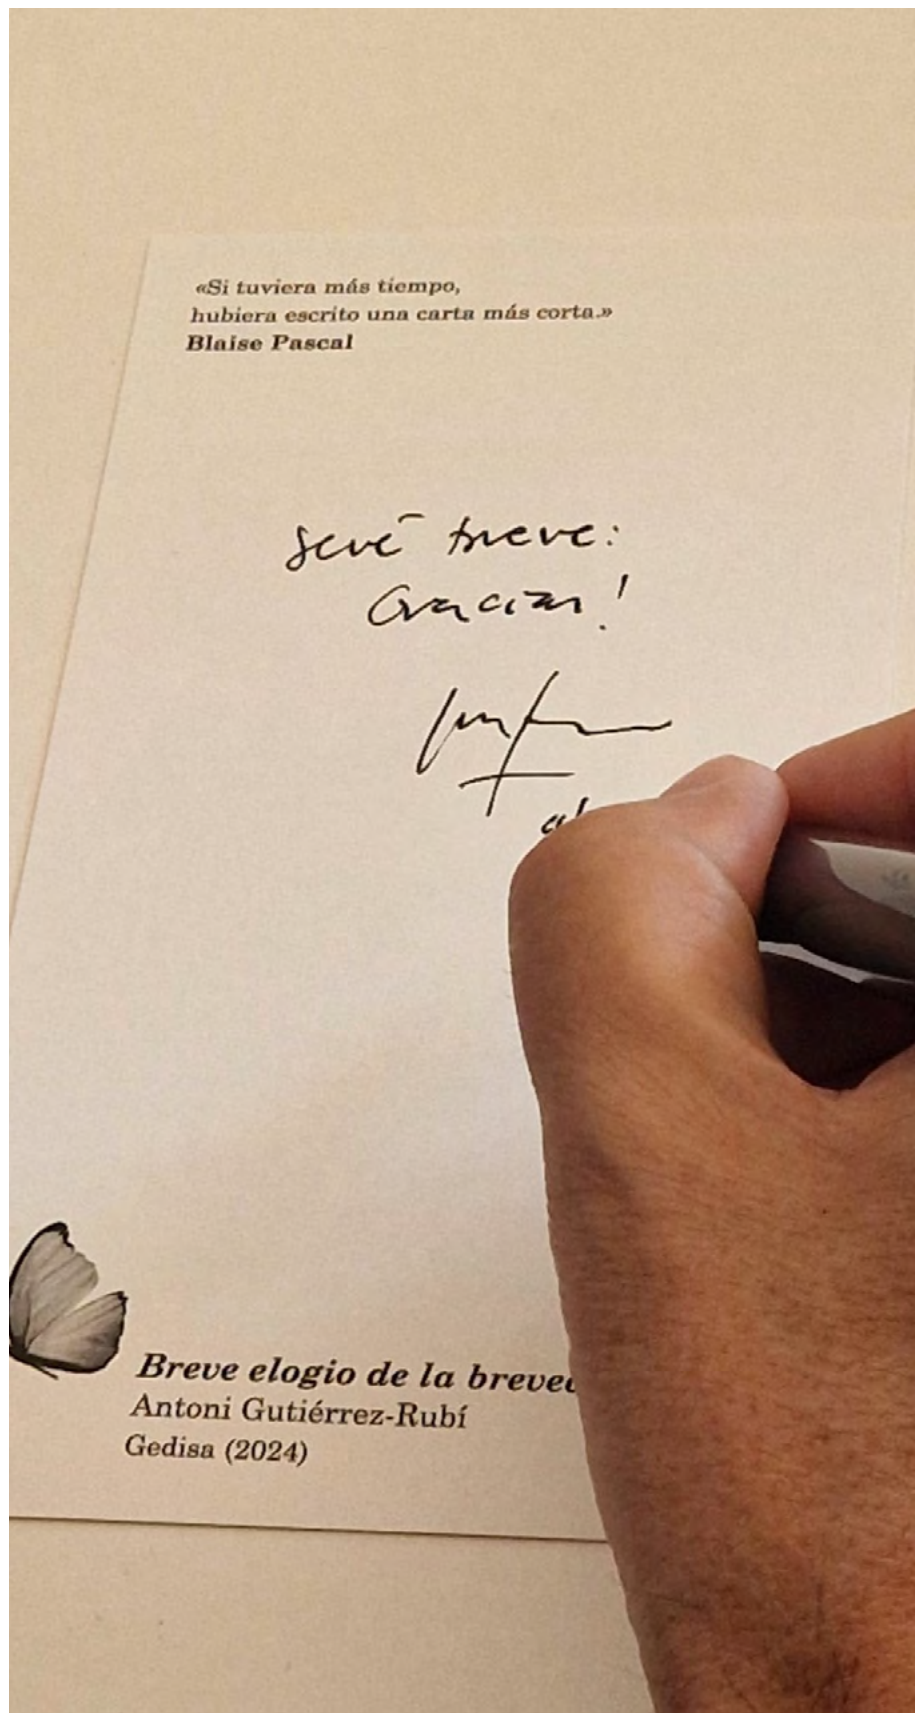 «Si tuviera más tiempo,
hubiera escrito una carta más corta.»
Blaise Pascal
Seré breve:
Gracias!
Breve elogio de la
Antoni Gutiérrez-Rubí
Gedisa (2024)